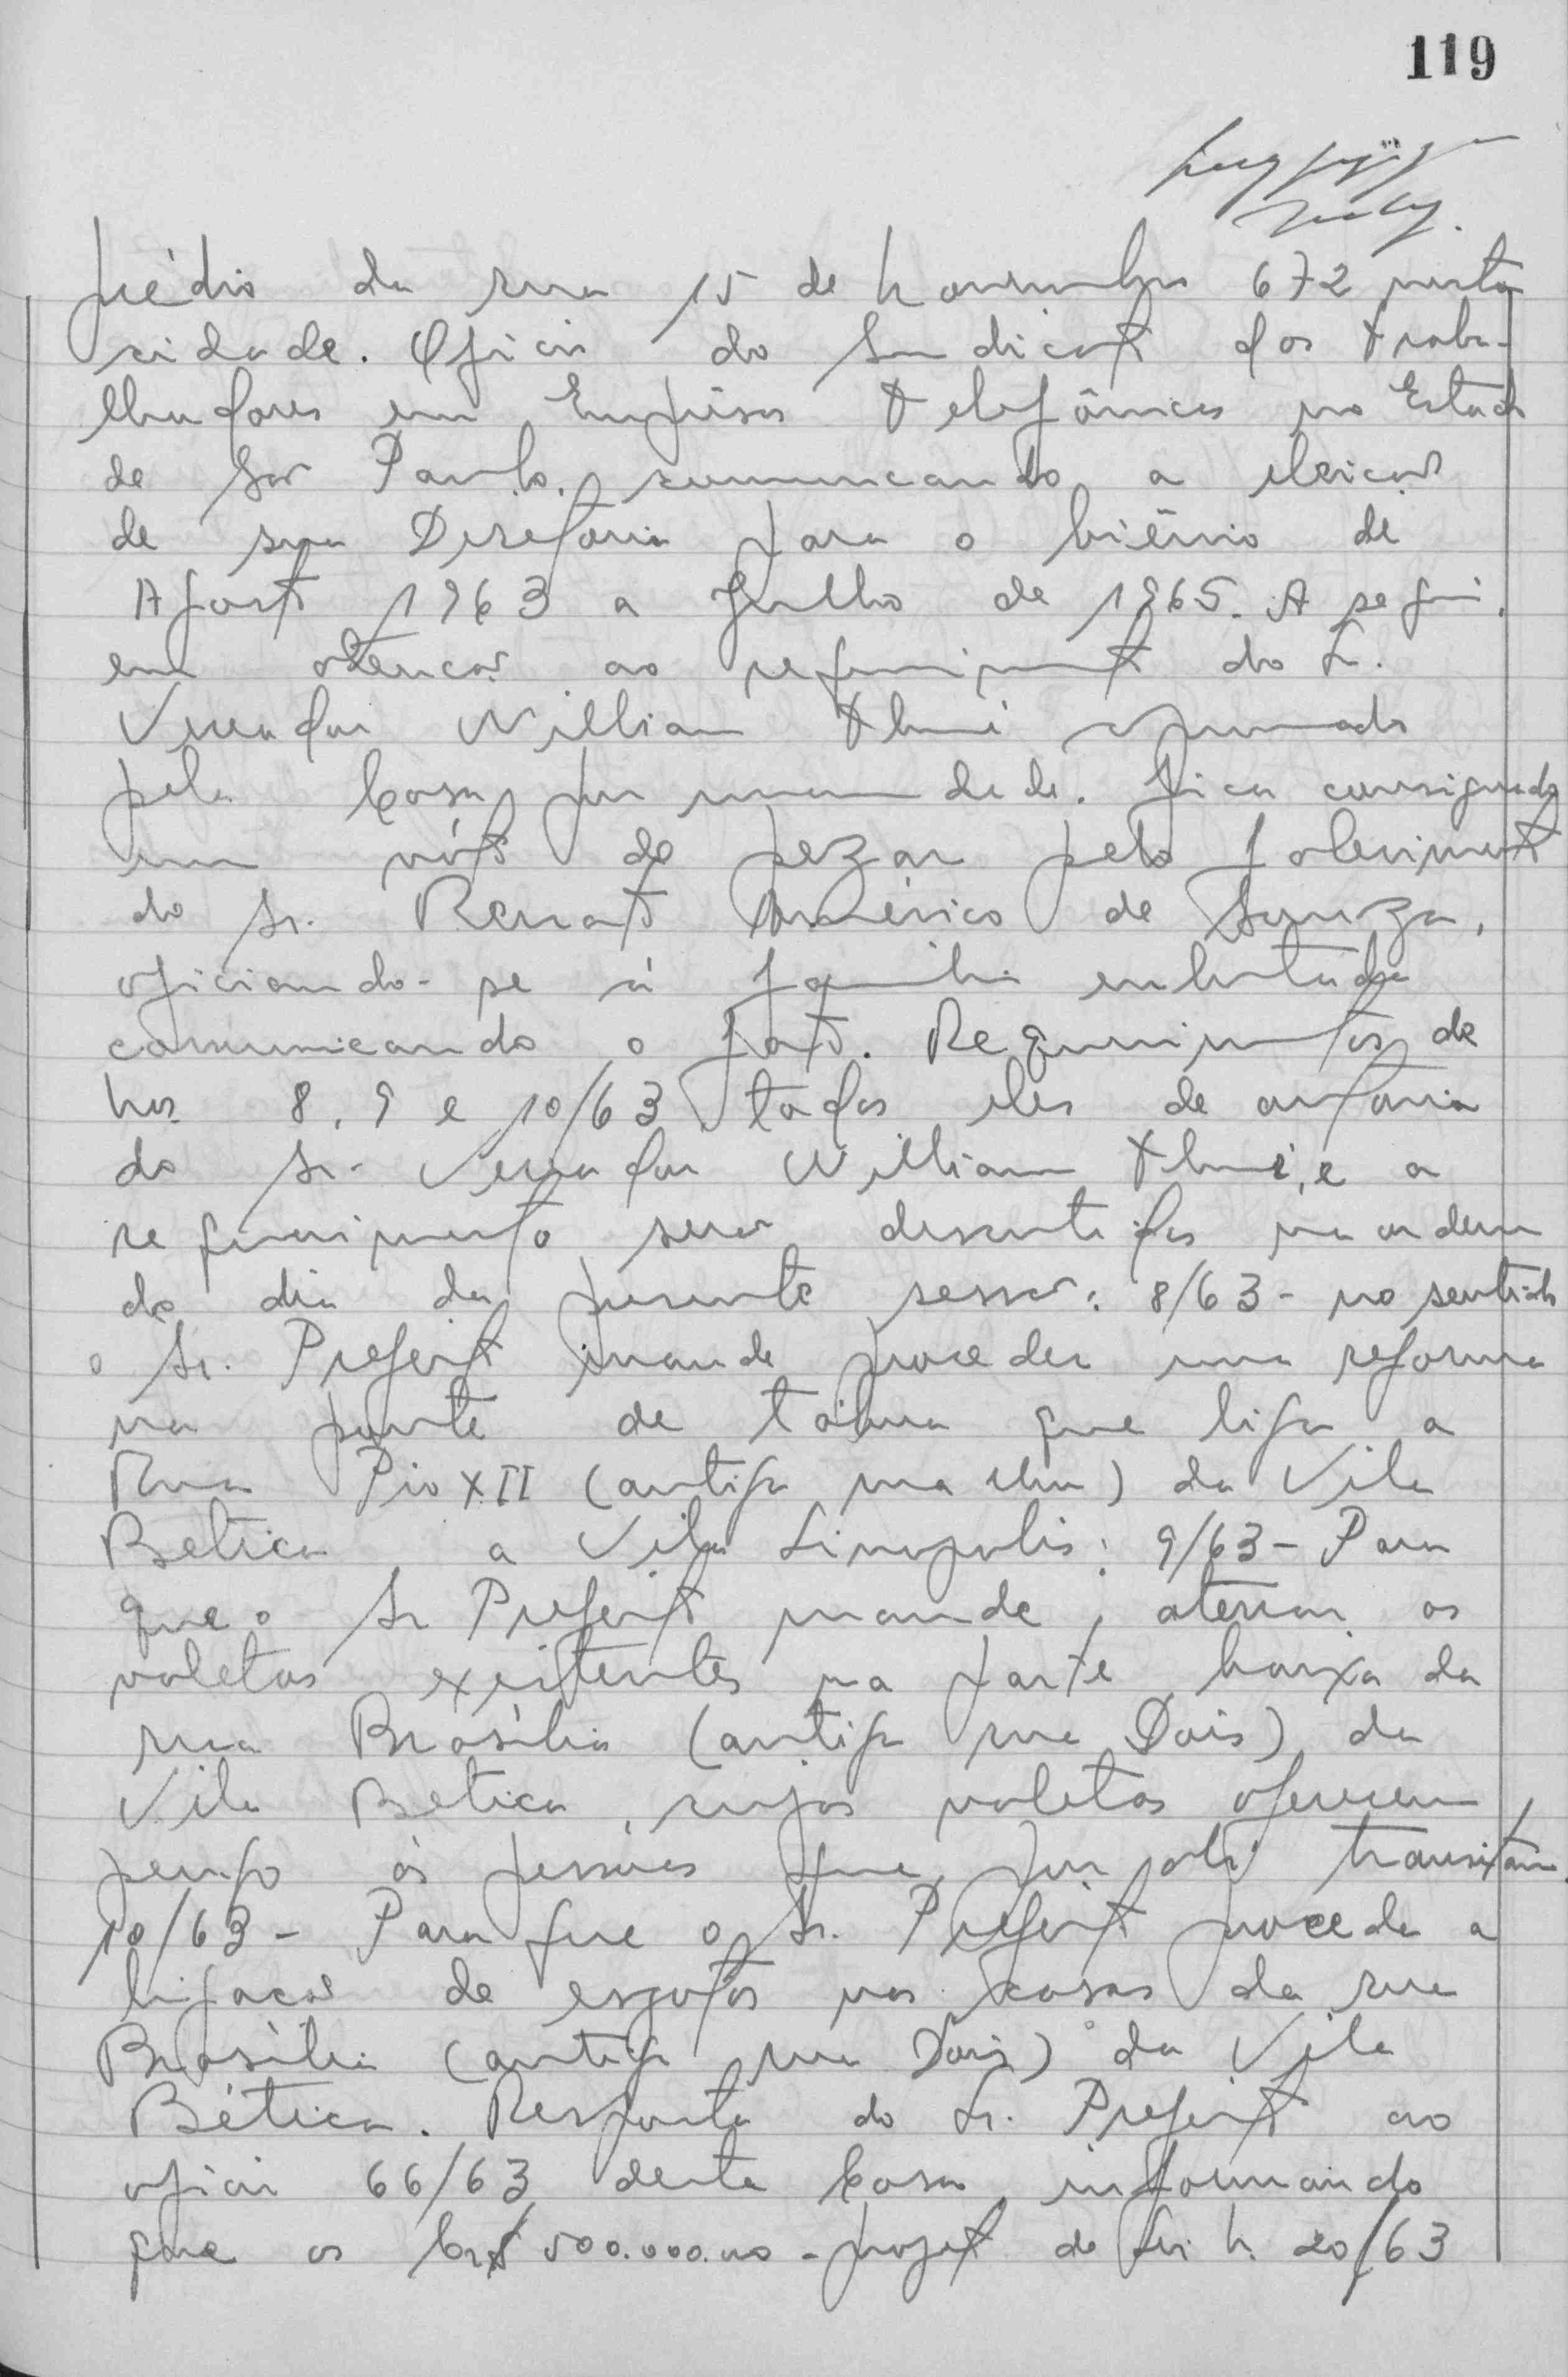 119
prédio da rua 15 de Novembro 672 nesta
cidade. Oficio do Sindicato dos Traba-
lhadores em Emprêsas Telefônicas no Estado
de São Paulo, comunicando a eleição
de sua Diretoria para o biênio de
Agosto 1963 a Julho de 1965. A seguir,
em atenção ao requerimento do Sr.
Vereador William Thomé aprovado
pela Casa por unanimidade. Fica consignado
um vóto de pezar pelo falecimento
do Sr. Renato Américo de Souza,
oficiando-se à familia enlutada
comunicando o fato. Requerimentos de
nos. 8, 9 e 10/63 todos eles de autoria
do Sr. Vereador William Thomé, e a
requerimento serão discutidos na ordem
do dia da presente sessão: 8/63 - no sentido
o Sr. Prefeito mande proceder uma reforma
na ponte de tábua que liga a
Rua Pio XII (antiga rua Um) da Vila
Betica a Vila Linopolis: 9/63 - Para
que o Sr Prefeito mande, aterrar os
valetas existentes na parte baixa da
rua Brasília (antiga rua Dois) da
Vila Betica, cujas valetas oferecem
perigo ás pessoas que por ali transitam.
10/63 - Para que o Sr. Prefeito proceda a
ligação de esgotos nas casas da rua
Brasília (antiga rua Dois) da Vila
Bética. Resposta do Sr. Prefeito ao
oficio 66/63 desta Casa, informando
que os Cr$ 500.000.00 - projeto de lei n. 20/63